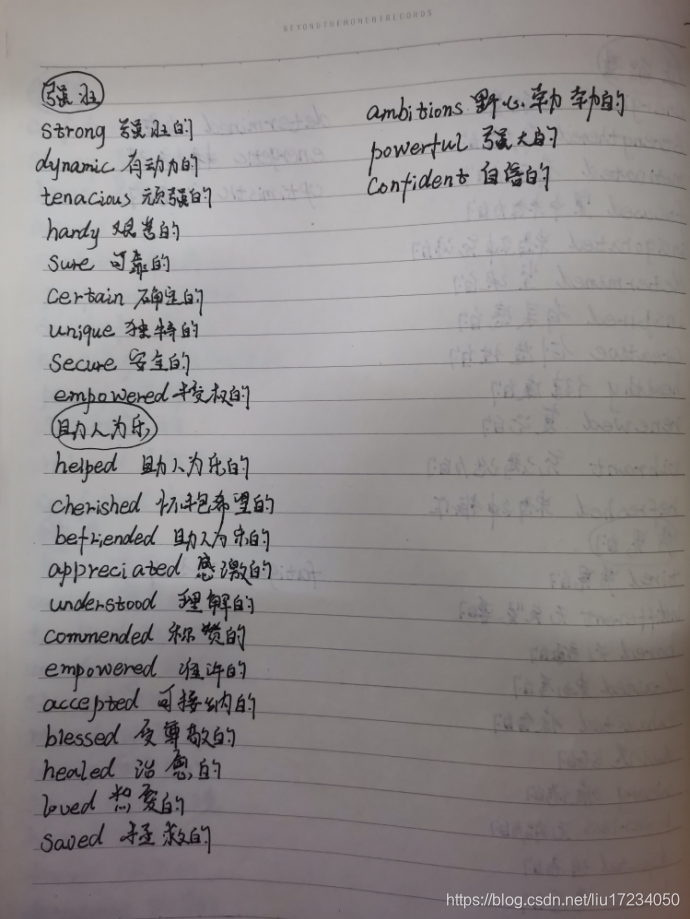 BEYONDTHEMOMENTRECORDS
强壮
strong 强壮的
dynamic 有动力的
tenacious 顽强的
hardy 艰苦的
sure 可靠的
certain 确定的
unique 独特的
secure 安全的
empowered 授权的
助人为乐
helped 助人为乐的
cherished 怀抱希望的
befriended 助人为乐的
appreciated 感激的
understood 理解的
commended 称赞的
empowered 准许的
accepted 可接纳的
blessed 受尊敬的
healed 治愈的
loved 热爱的
saved 拯救的
ambitions 野心勃勃的
powerful 强大的
confident 自信的
https://blog.csdn.net/liu17234050